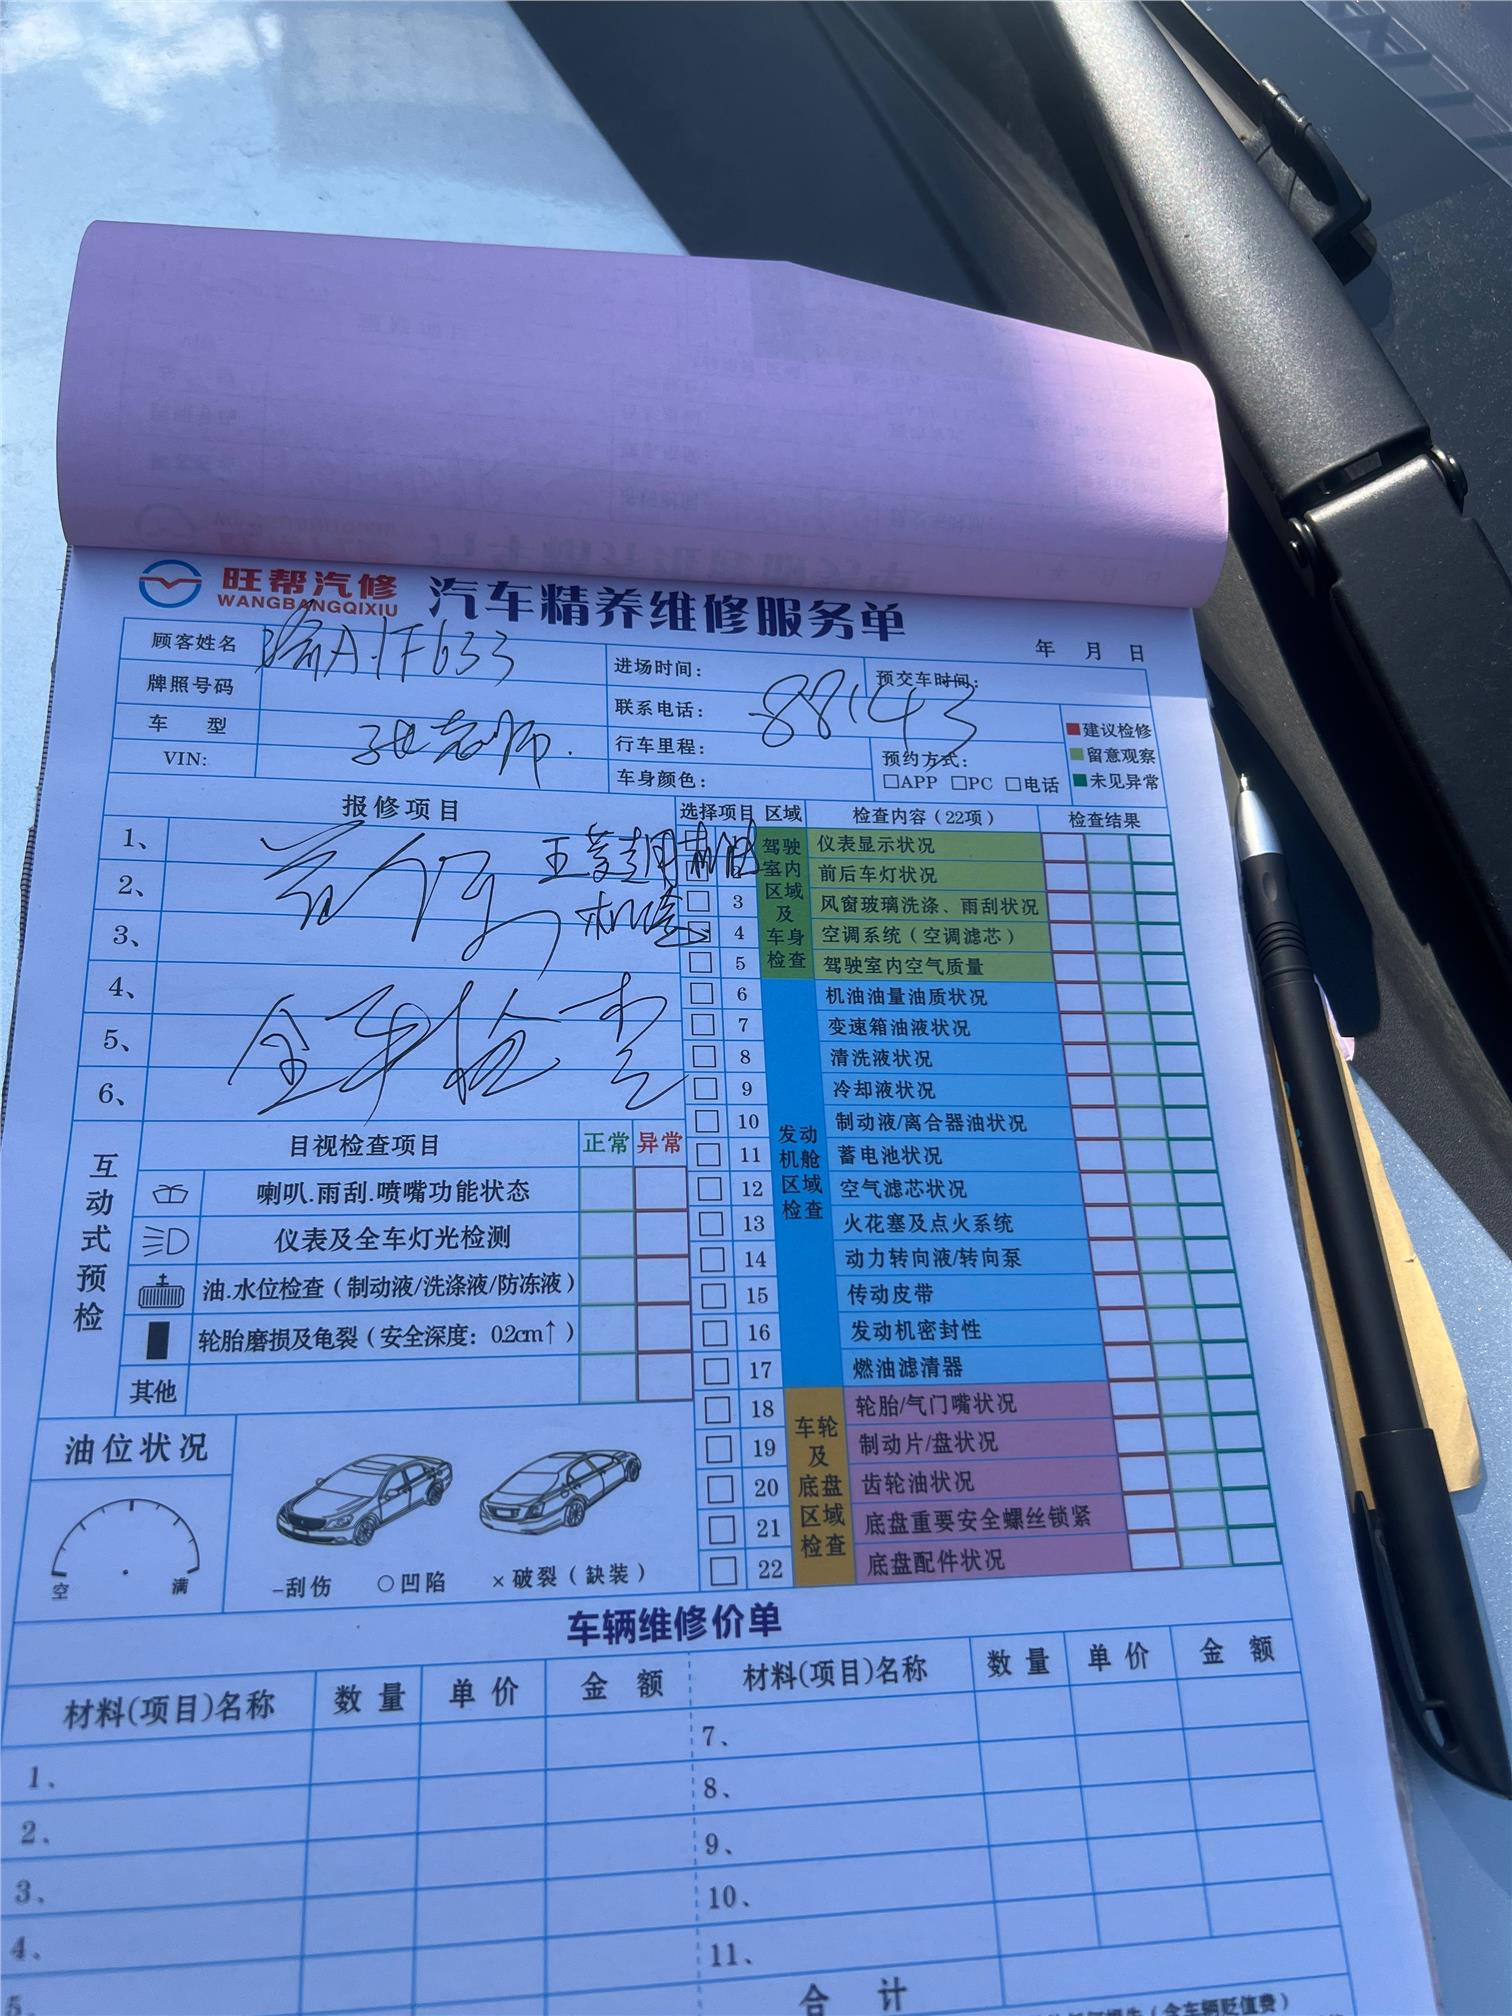 旺帮汽修
WANGBANGQIXIU
汽车精养维修服务单
年 月 日
顾客姓名 渝A·1F633
进场时间:
预交车时间:
牌照号码
联系电话:
88143
车 型
张老师.
行车里程:
预约方式:
VIN:
车身颜色:
□APP □PC □电话
建议检修
留意观察
未见异常
报修项目
选择项目 区域 检查内容(22项) 检查结果
1、
2、
3、
4、
5、
6、
保养
机滤
全车检查
驾驶室内区域及车身检查
仪表显示状况
前后车灯状况
3 风窗玻璃洗涤、雨刮状况
4 空调系统(空调滤芯)
5 驾驶室内空气质量
发动机舱区域检查
6 机油油量油质状况
7 变速箱油液状况
8 清洗液状况
9 冷却液状况
10 制动液/离合器油状况
11 蓄电池状况
12 空气滤芯状况
13 火花塞及点火系统
14 动力转向液/转向泵
15 传动皮带
16 发动机密封性
17 燃油滤清器
车轮及底盘区域检查
18 轮胎/气门嘴状况
19 制动片/盘状况
20 齿轮油状况
21 底盘重要安全螺丝锁紧
22 底盘配件状况
互动式预检
目视检查项目 正常 异常
喇叭.雨刮.喷嘴功能状态
仪表及全车灯光检测
油.水位检查(制动液/洗涤液/防冻液)
轮胎磨损及龟裂(安全深度: 0.2cm↑)
其他
油位状况
空 满
–刮伤 ○凹陷 ×破裂(缺装)
车辆维修价单
材料(项目)名称 数量 单价 金额 材料(项目)名称 数量 单价 金额
1、 7、
2、 8、
3、 9、
4、 10、
5、 11、
合 计
(含车辆贬值费)